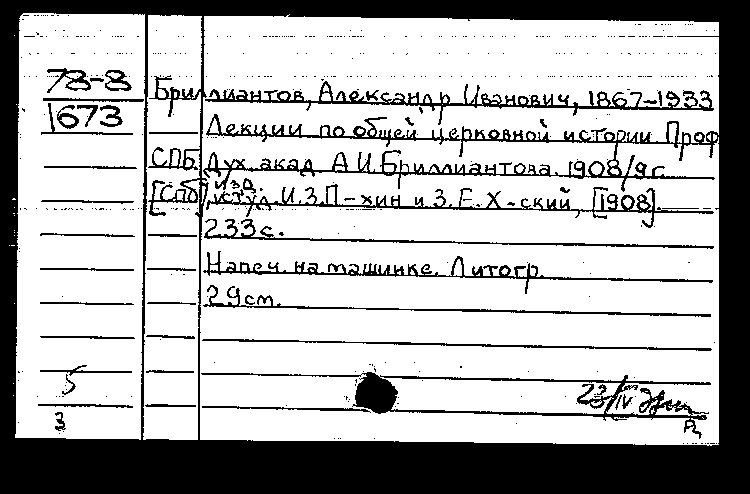 73-8
1673
Бриллиантов, Александр Иванович, 1867-1933
Лекции по общей церковной истории Проф
СПБ. Дух. акад. А.И.Бриллиантова. 1908/9 г.
[Спб], изд. студ. И.З.П-хин и З.Е.Х-ский, [1908].
233 с.
Напеч. на машинке. Литогр.
29 см.
5
3
23/IV
Рц